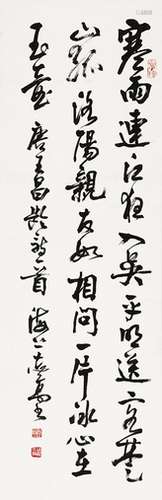 寒雨連江夜入吳平明送客楚
山孤洛陽親友如相問一片冰心在
玉壺 唐王昌齡詩首 海上